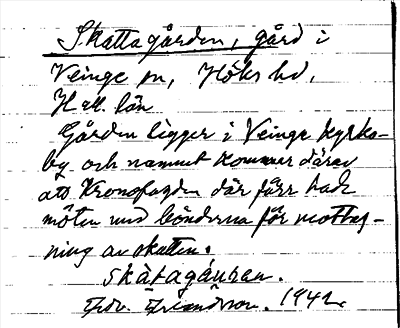 Skattagården, gård i
Veinge sn, Höks hd,
Hall. län
Gården ligger i Veinge kyrko-
by och namnet kommer därav
att Kronofogden där förr hade
möten med bönderna för mottag-
ning av skatten.
skátagáuren.
1942